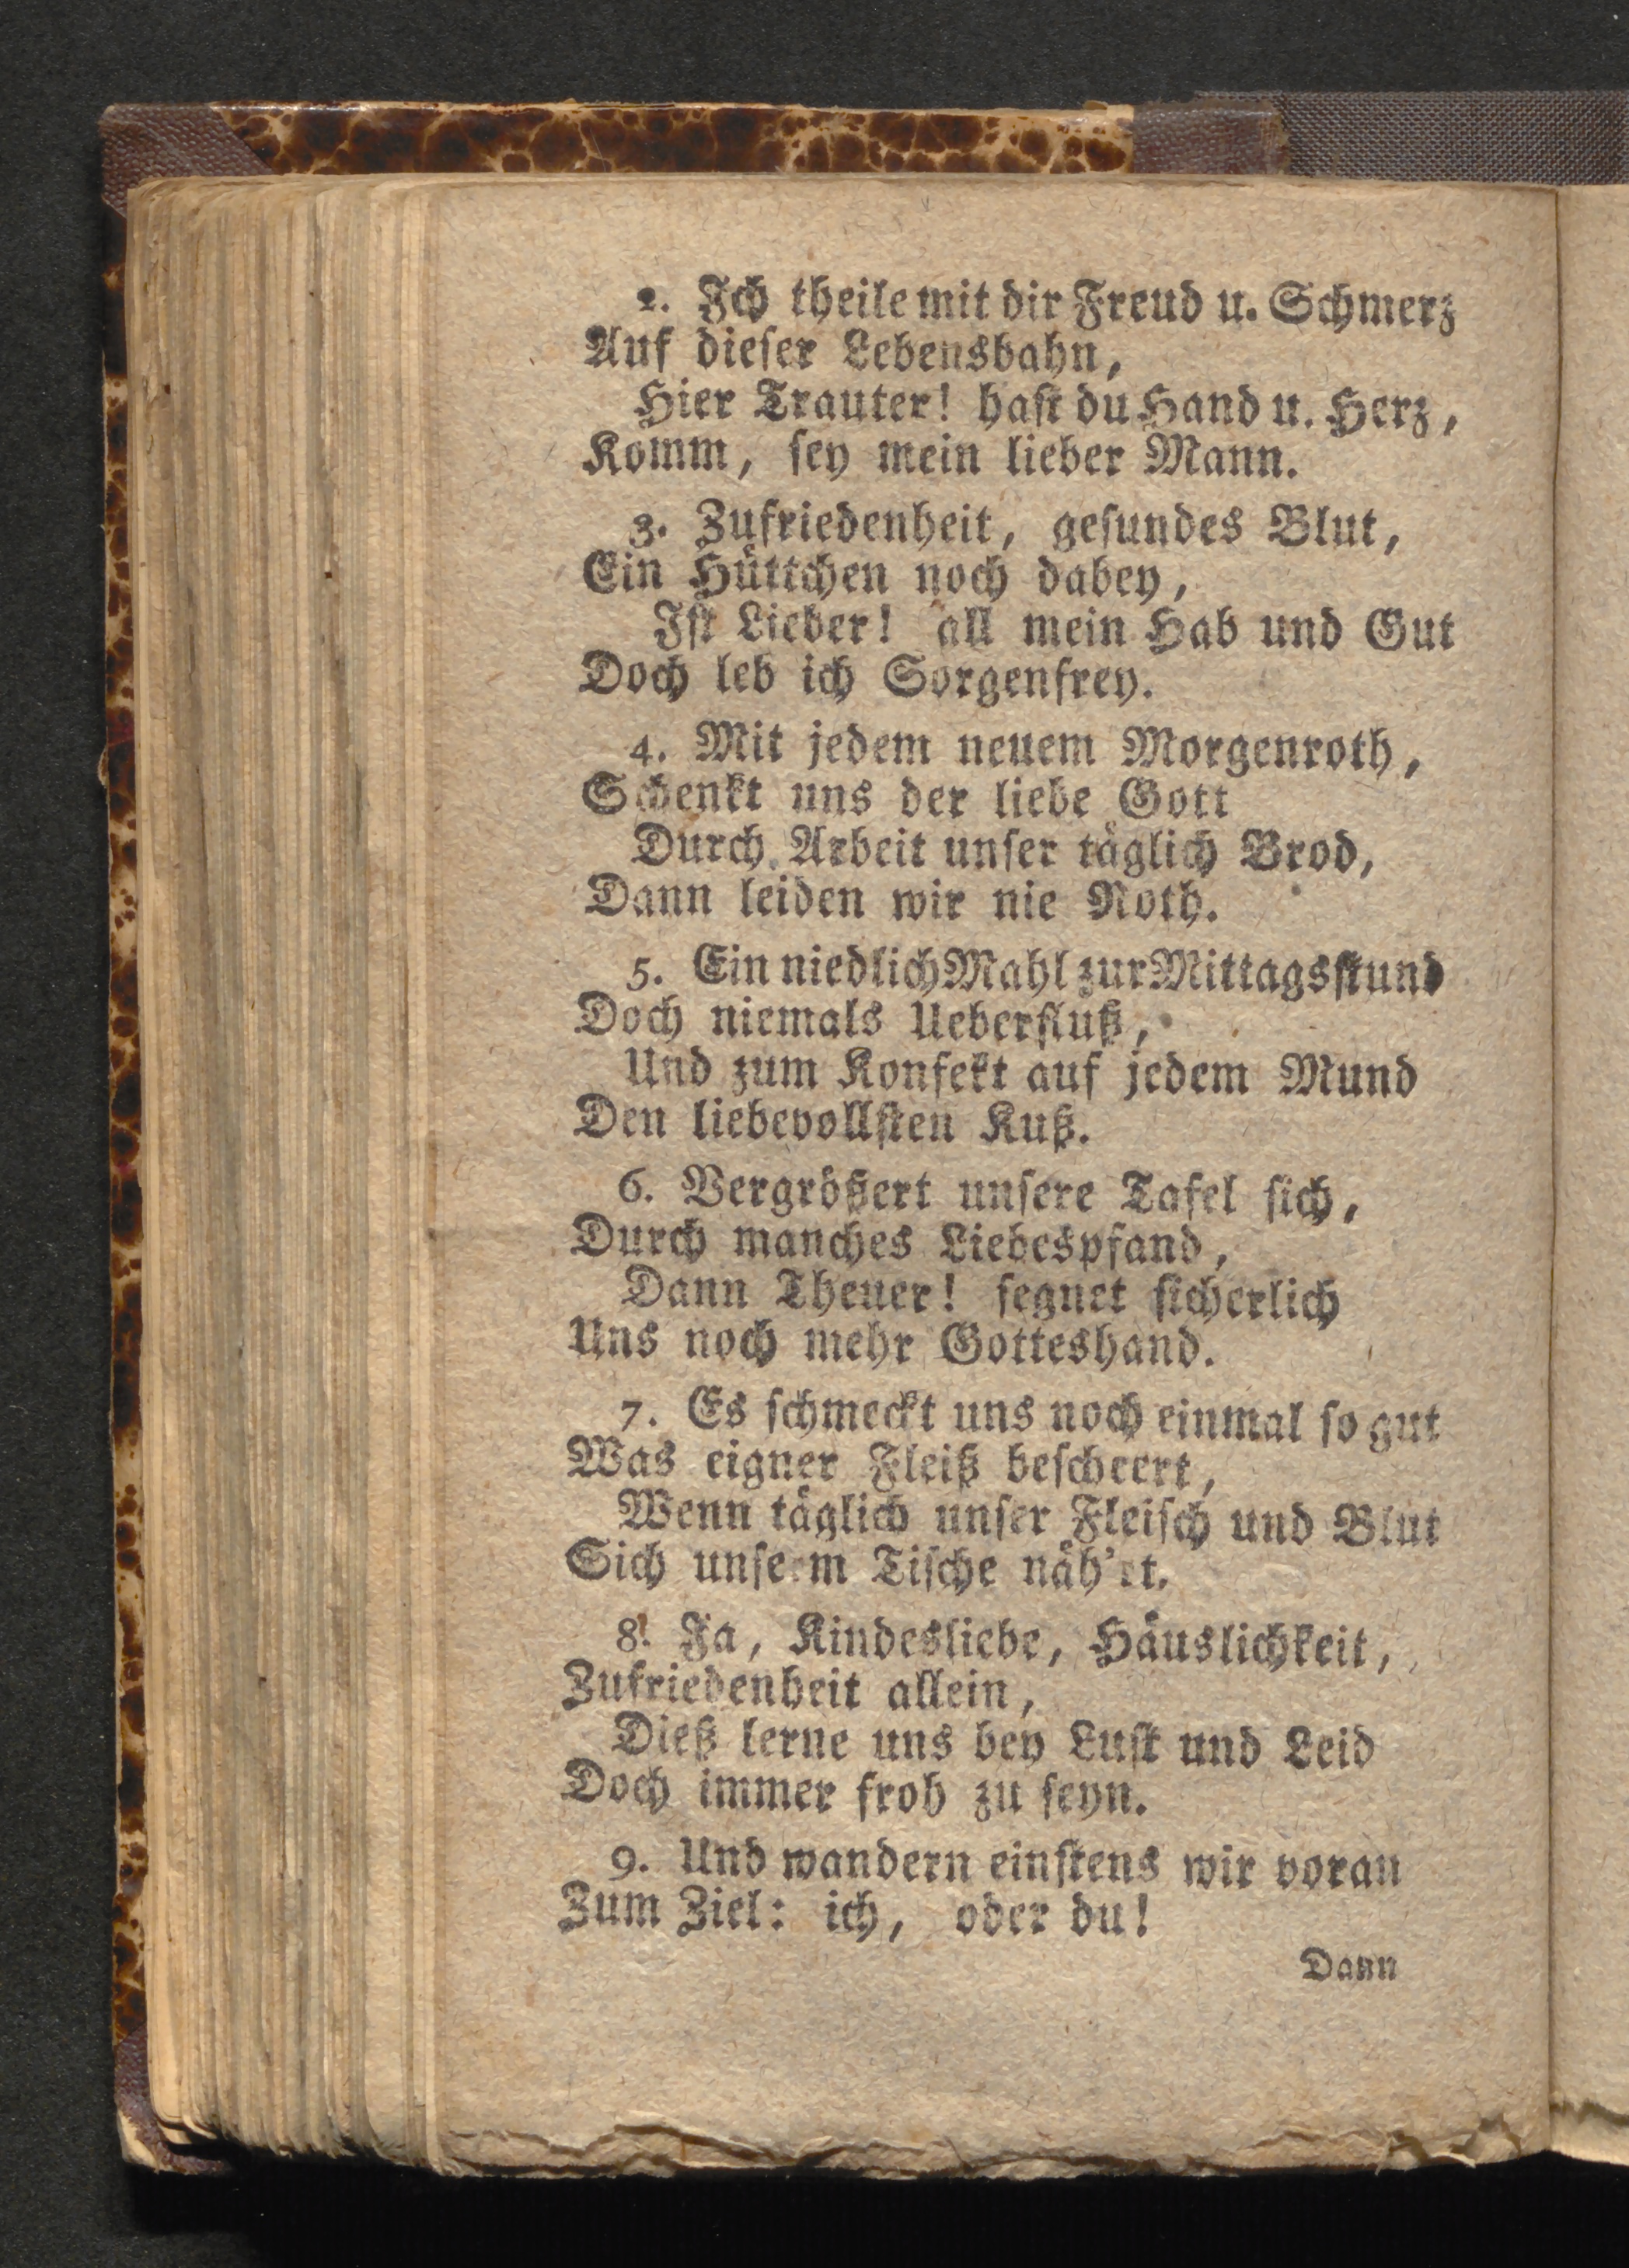 2. Ich theile mit dir Freud u. Schmerz
Auf dieſer Lebensbahn,
Hier Trauter! haſt du Hand u. Herz,
Komm, ſey mein lieber Mann.
3. Zufriedenheit, geſundes Blut,
Ein Hüttchen noch dabey,
Iſt Lieber! all mein Hab und Gut
Doch leb ich Sorgenfrey.
4. Mit jedem neuem Morgenroth,
Schenkt uns der liebe Gott
Durch Arbeit unſer täglich Brod,
Dann leiden wir nie Noth.
5. Ein niedlich Mahl zur Mittagsſtund
Doch niemals Ueberfluß,
Und zum Konfekt auf jedem Mund
Den liebevollſten Kuß.
6. Vergrößert unſere Tafel ſich,
Durch manches Liebespfand,
Dann Theuer! ſegnet ſicherlich
Uns noch mehr Gotteshand.
7. Es ſchmeckt uns noch einmal ſo gut
Was eigner Fleiß beſcheert,
Wenn täglich unſer Fleiſch und Blut
Sich unſerm Tiſche näh'rt.
8. Ja, Kindesliebe, Häuslichkeit,
Zufriedenheit allein,
Dieß lerne uns bey Luſt und Leid
Doch immer froh zu ſeyn.
9. Und wandern einſtens wir voran
Zum Ziel: ich, oder du!
Dann